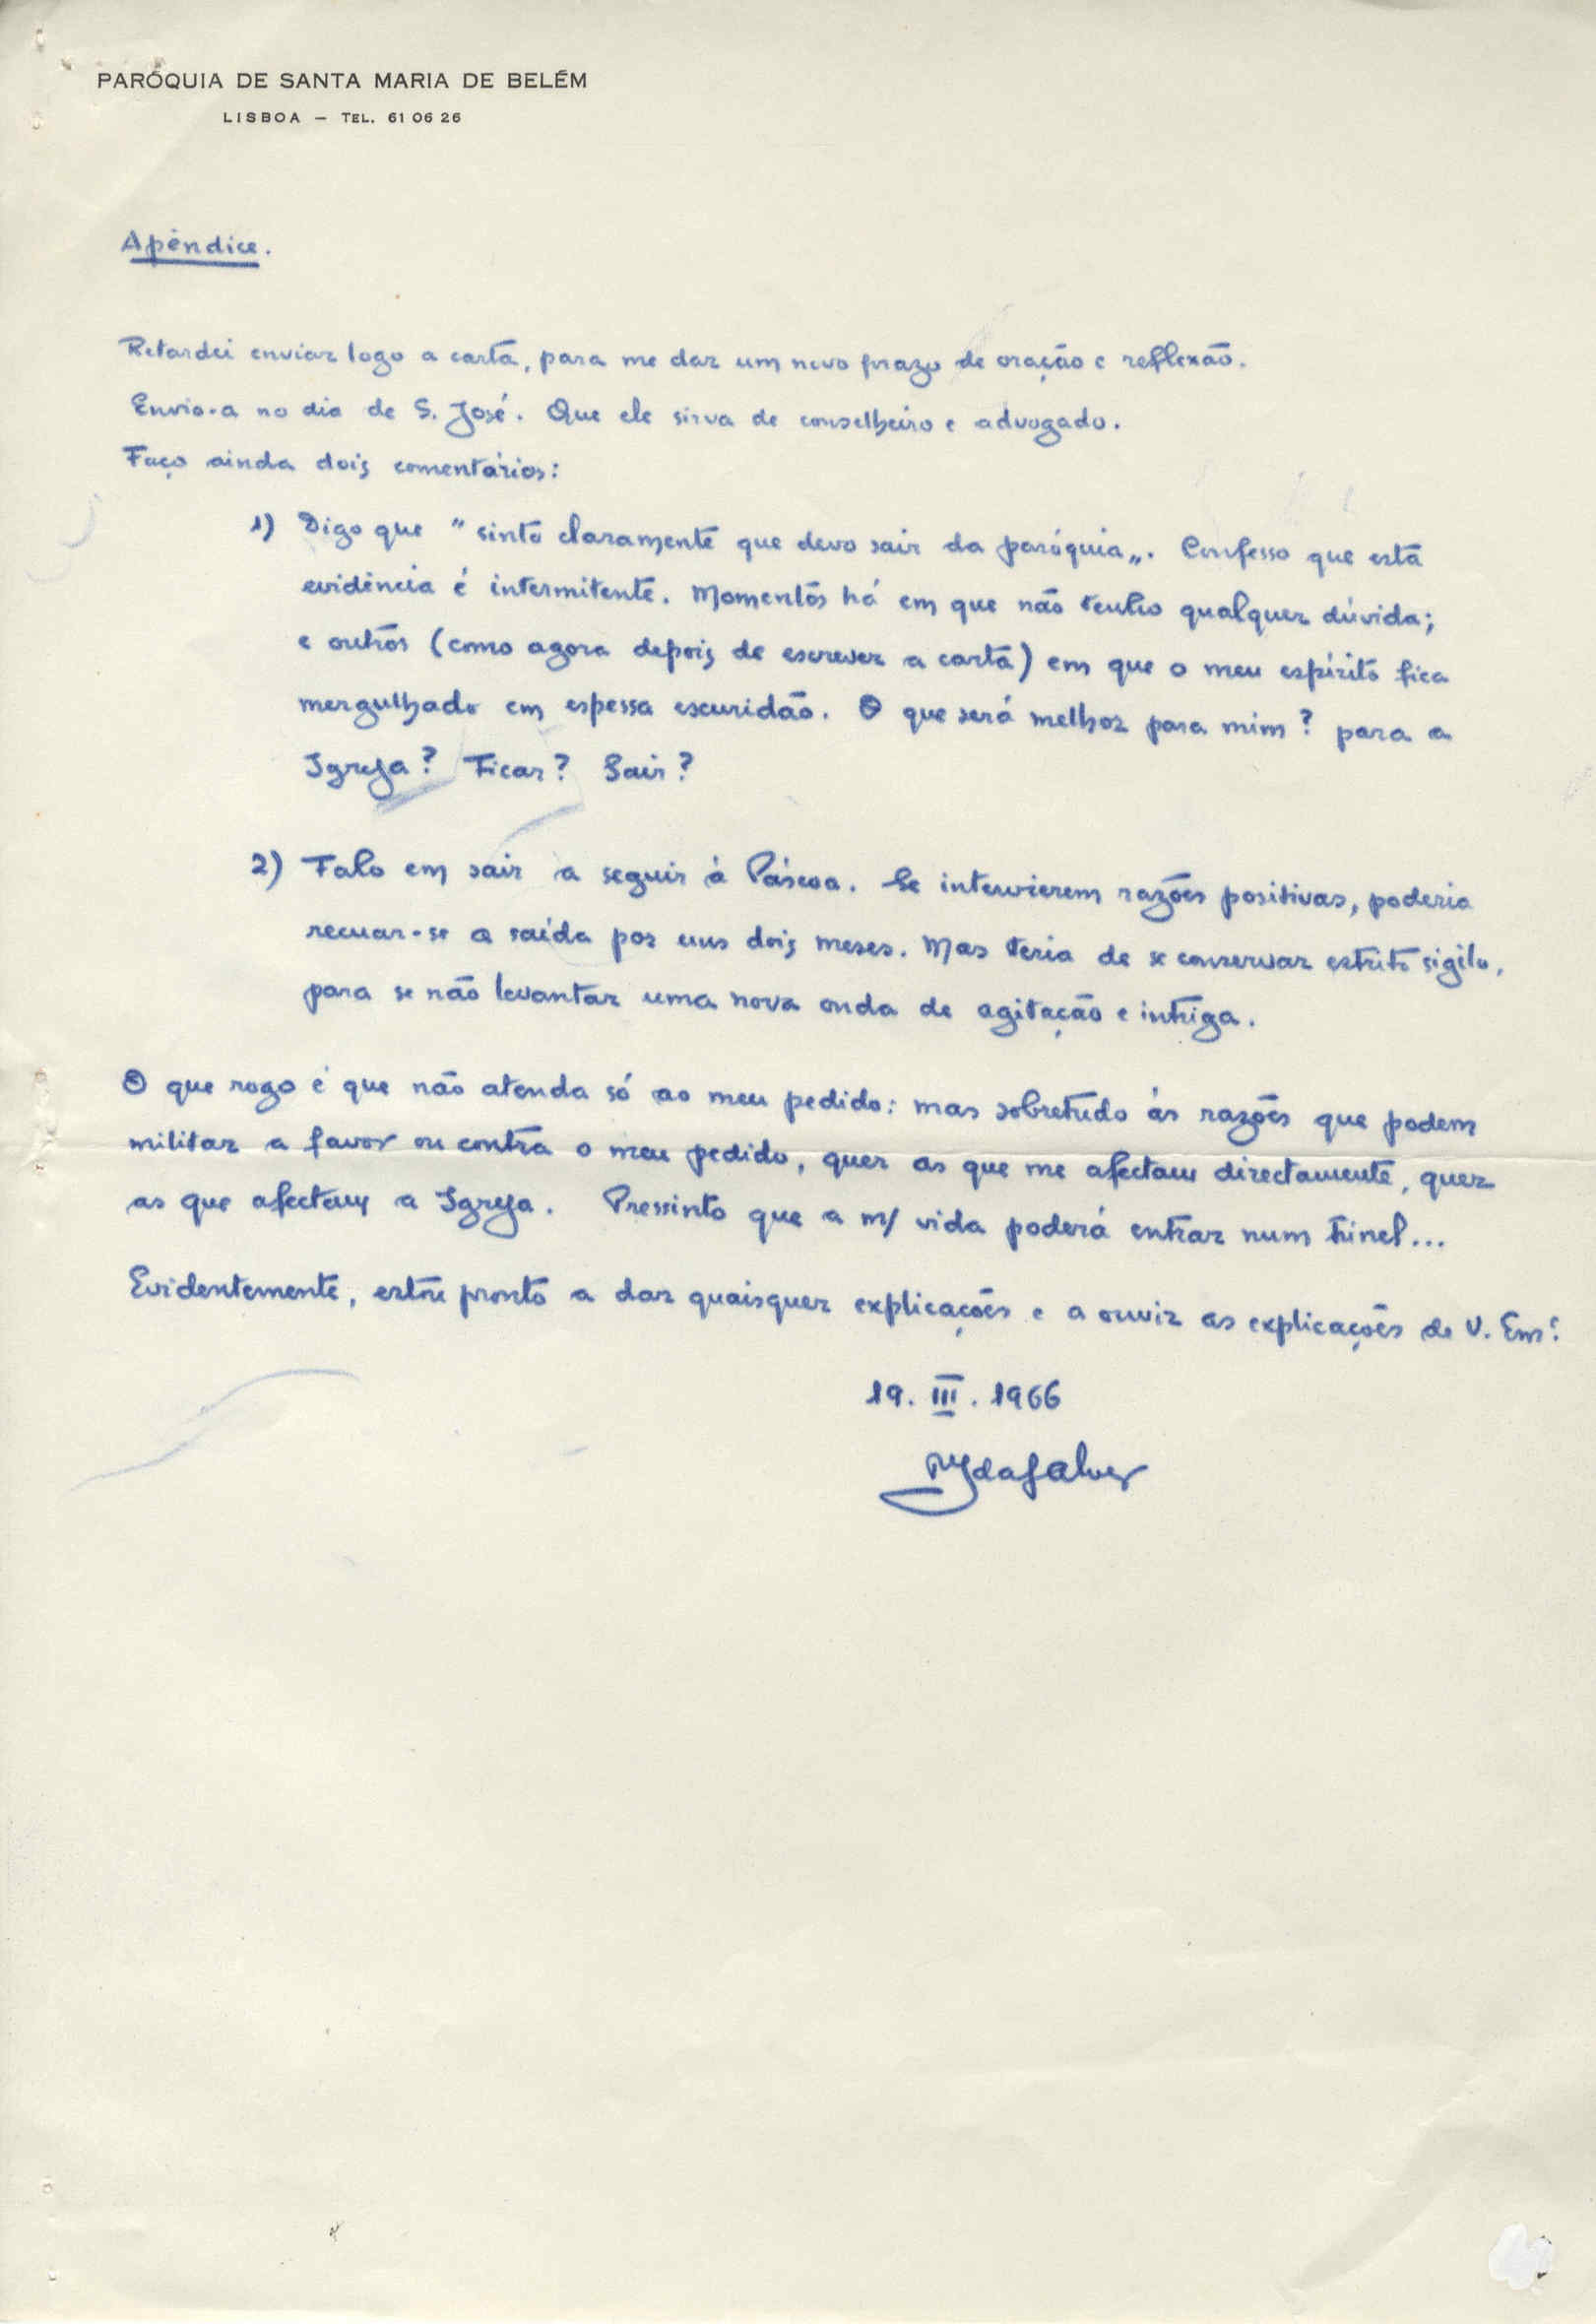 PARÓQUIA DE SANTA MARIA DE BELÉM
LISBOA — TEL. 61 06 26
Apêndice.
Retardei enviar logo a carta, para me dar um novo prazo de oração e reflexão.
Envio-a no dia de S. José. Que ele sirva de conselheiro e advogado.
Faço ainda dois comentários:
1) Digo que "sinto claramente que devo sair da paróquia„. Confesso que esta
evidência é intermitente. Momentos há em que não tenho qualquer dúvida;
e outros (como agora depois de escrever a carta) em que o meu espírito fica
mergulhado em espessa escuridão. O que será melhor para mim? para a
Igreja? Ficar? Sair?
2) Falo em sair a seguir à Páscoa. Se intervierem razões positivas, poderia
recuar-se a saída por uns dois meses. Mas teria de se conservar estrito sigilo,
para se não levantar uma nova onda de agitação e intriga.
O que rogo é que não atenda só ao meu pedido: mas sobretudo às razões que podem
militar a favor ou contra o meu pedido, quer as que me afectam directamente, quer
as que afectam a Igreja. Pressinto que a m/ vida poderá entrar num túnel...
Evidentemente, estou pronto a dar quaisquer explicações e a ouvir as explicações de V. Em.ª
19. III. 1966